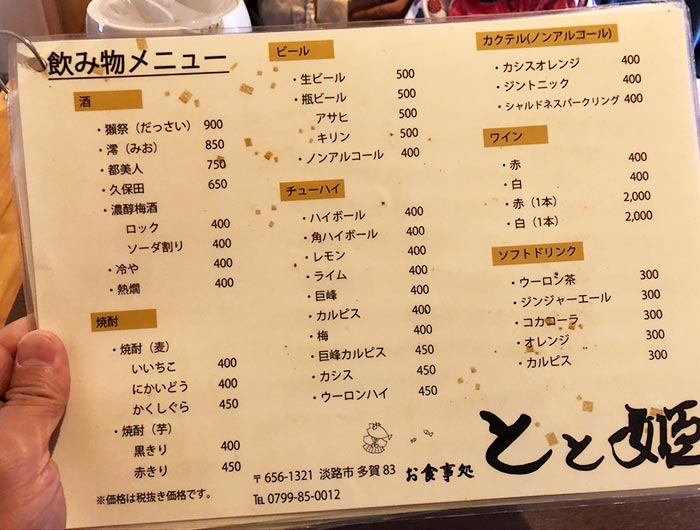 飲み物メニュー
酒
・獺祭（だっさい） 900
・澪（みお） 850
・都美人 750
・久保田 650
・濃醇梅酒
ロック 400
ソーダ割り 400
・冷や 400
・熱燗 400
焼酎
・焼酎（麦）
いいちこ 400
にかいどう 400
かくしぐら 450
・焼酎（芋）
黒きり 400
赤きり 450
※価格は税抜き価格です。
ビール
・生ビール 500
・瓶ビール 500
アサヒ 500
キリン 500
・ノンアルコール 400
チューハイ
・ハイボール 400
・角ハイボール 400
・レモン 400
・ライム 400
・巨峰 400
・カルピス 400
・梅 400
・巨峰カルピス 450
・カシス 450
・ウーロンハイ 450
カクテル(ノンアルコール)
・カシスオレンジ 400
・ジントニック 400
・シャルドネスパークリング 400
ワイン
・赤 400
・白 400
・赤（1本） 2,000
・白（1本） 2,000
ソフトドリンク
・ウーロン茶 300
・ジンジャーエール 300
・コカコーラ 300
・オレンジ 300
・カルピス 300
〒656-1321 淡路市 多賀 83
TEL 0799-85-0012
お食事処
とと姫